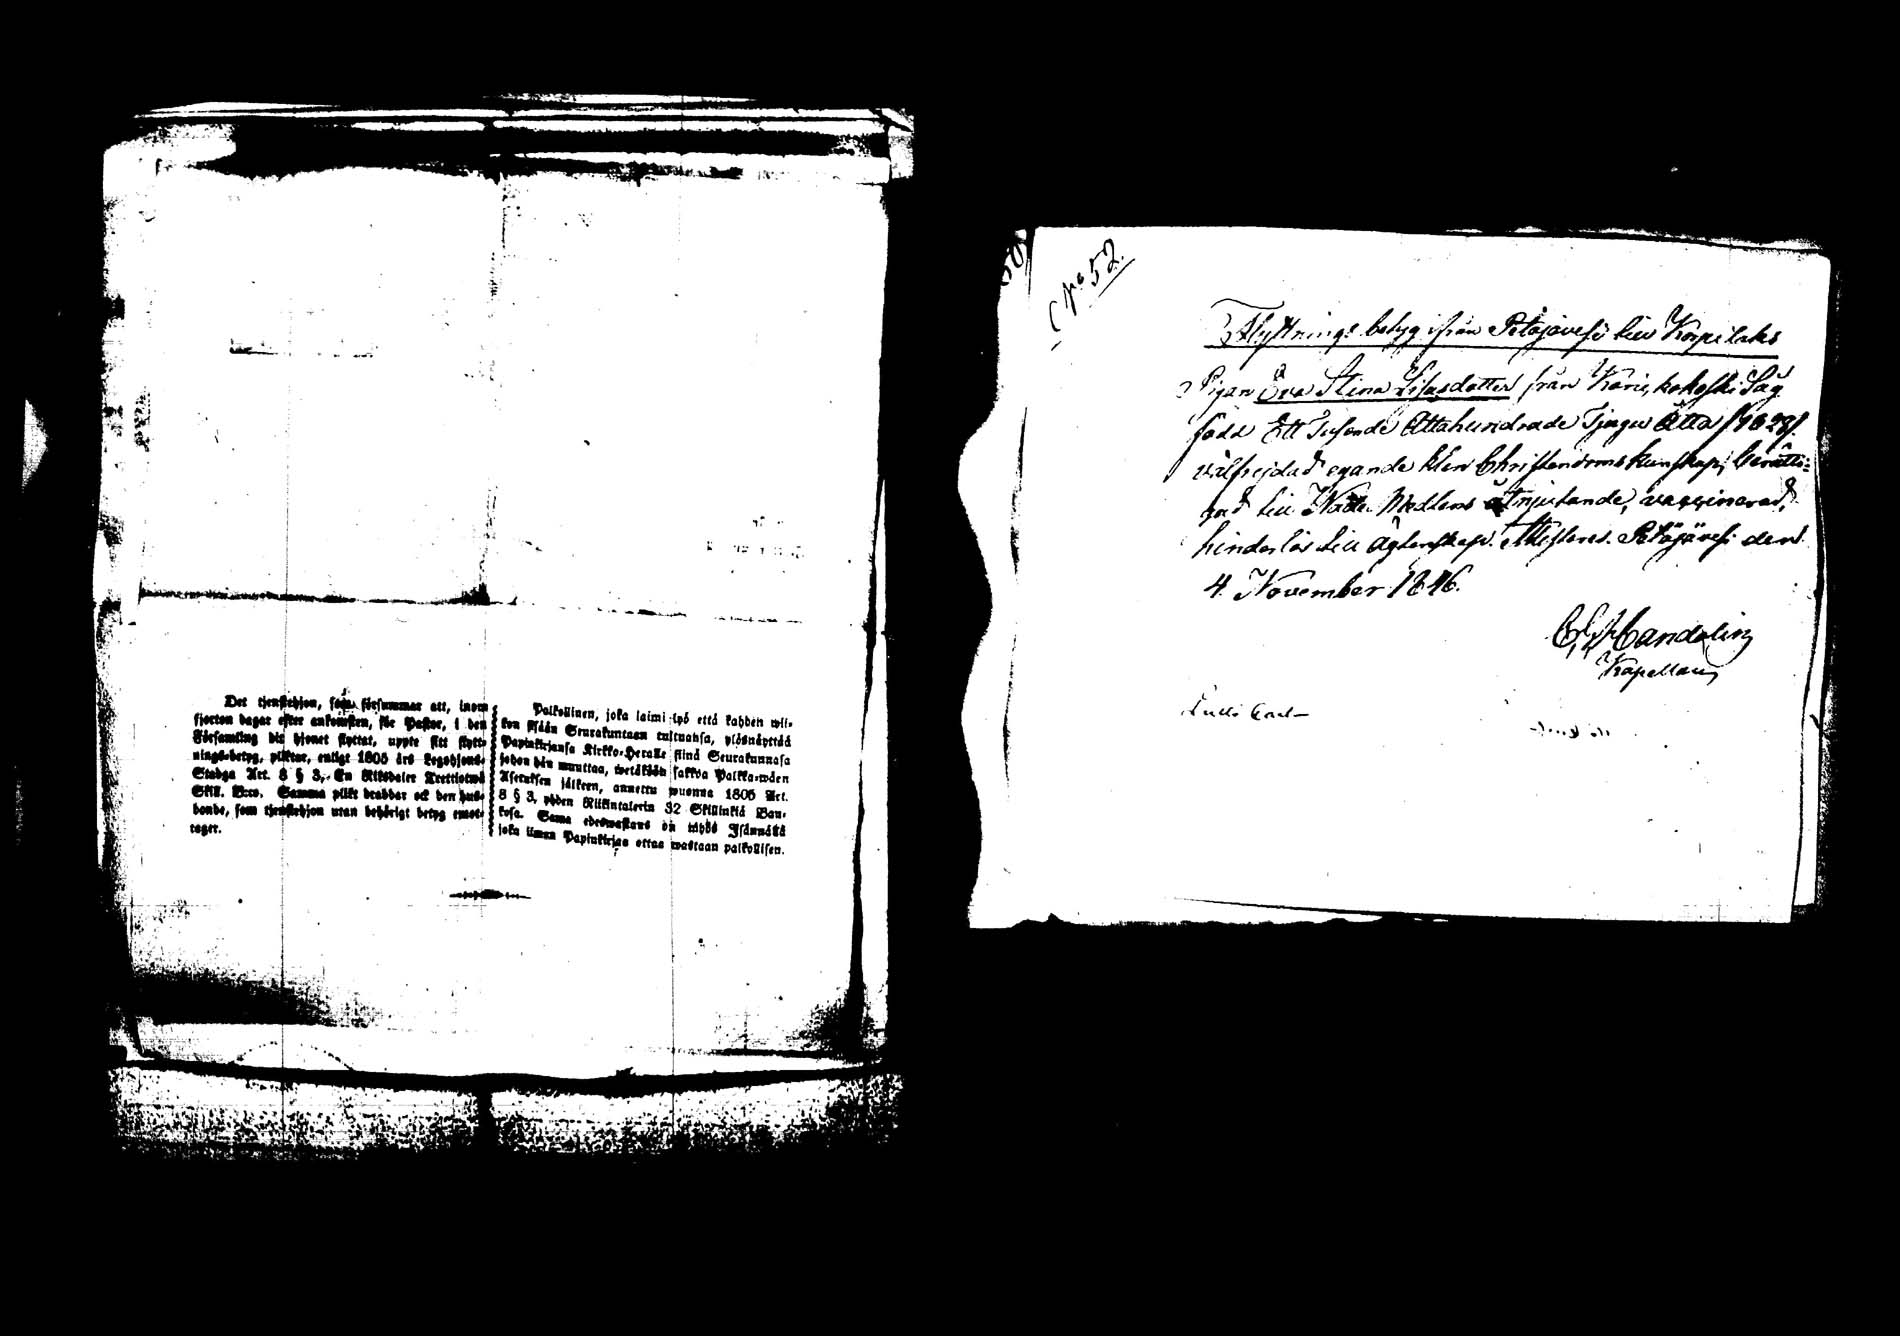 Det tjenstehjon, som försummar att, inom
fjorton dagar efter ankomsten, för Pastor, i den
Församling dit hjonet flyttat, uppte sitt flytt-
ningsbetyg, pliktar, enligt 1805 års Legohjons-
Stadga Art. 8 § 3, En Riksdaler Trettiotwå
Skill. B:co. Samma plikt drabbar ock den hus-
bonde, som tjenstehjon utan behörigt betyg emot-
tager.
Palkollinen, joka laimi lyö että kahden wii-
kon sisään Seurakuntaan tultuansa, ylösnäyttää
Papinkirjansa Kirkko-Herralle siinä Seurakunnasa
johon hän muuttaa, wetäköön sakkoa Palkka-wäen
Asetuksen jälkeen, annettu wuonna 1805 Art.
8 § 3, yhden Riikintalerin 32 Skillinkiä Ban-
kosa. Sama edeswastaus on myös Isännällä
joka ilman Papinkirjaa ottaa wastaan palkollisen.
N:o 52.
Flyttnings betyg ifrån Petäjävesi till Korpilaks
Pigan Eva Stina Lisasdotter från Koski Såg
född Ett Tusende Åttahundrade Tjugu Åtta /1828/.
välfrejdad egande klen Christendoms kunskap, berätti-
gad till Natt Nådens åtnjutande, vaccinerad,
hinderlös till Ägtenskap. Attesteras. Petäjävesi den
4. November 1846.
Candelin
Kapellan